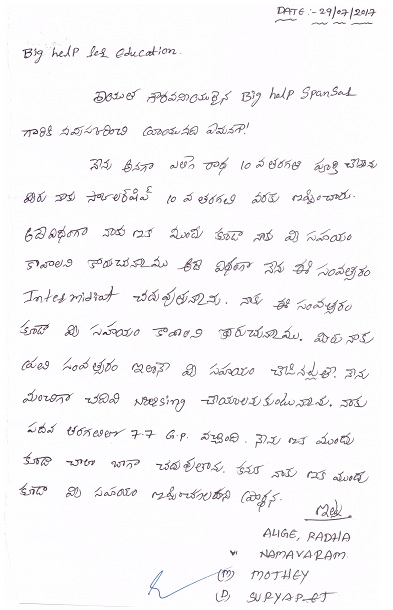 DATE :- 29/07/2017
Big help for Education.
గౌరవనీయులైన Big help Sponsor
గారికి నమస్కరించి వ్రాయునది ఏమనగా!
నేను అనగా ఎలిగె రాధ 10 వ తరగతి పూర్తి చేశాను
మీరు నాకు స్కాలర్‌షిప్ 10 వ తరగతి వరకు ఇచ్చినారు.
అదే విధంగా నాకు ఇక ముందు కూడా నాకు మీ సహాయం
కావాలని కోరుచున్నాము అదే విధంగా నేను ఈ సంవత్సరం
Intermidiat చదువుతున్నాను. నాకు ఈ సంవత్సరం
కూడా మీ సహాయం కావాలని కోరుచున్నాము. మీరు నాకు
ప్రతి సంవత్సరం ఇలానే మీ సహాయం చేసినట్లుతే. నేను
మంచిగా చదివి Nursing చేయాలనుకుంటున్నాను. నాకు
పదవ తరగతిలో 7.7 G.P. వచ్చింది. నేను ఇక ముందు
కూడా చాలా బాగా చదువుతాను. కనుక నాకు ఇక ముందు
కూడా మీ సహాయం ప్రార్థన.
ఇట్లు
ALIGE, RADHA
V. NAMAVARAM
(M) MOTHEY
(D) SURYAPET